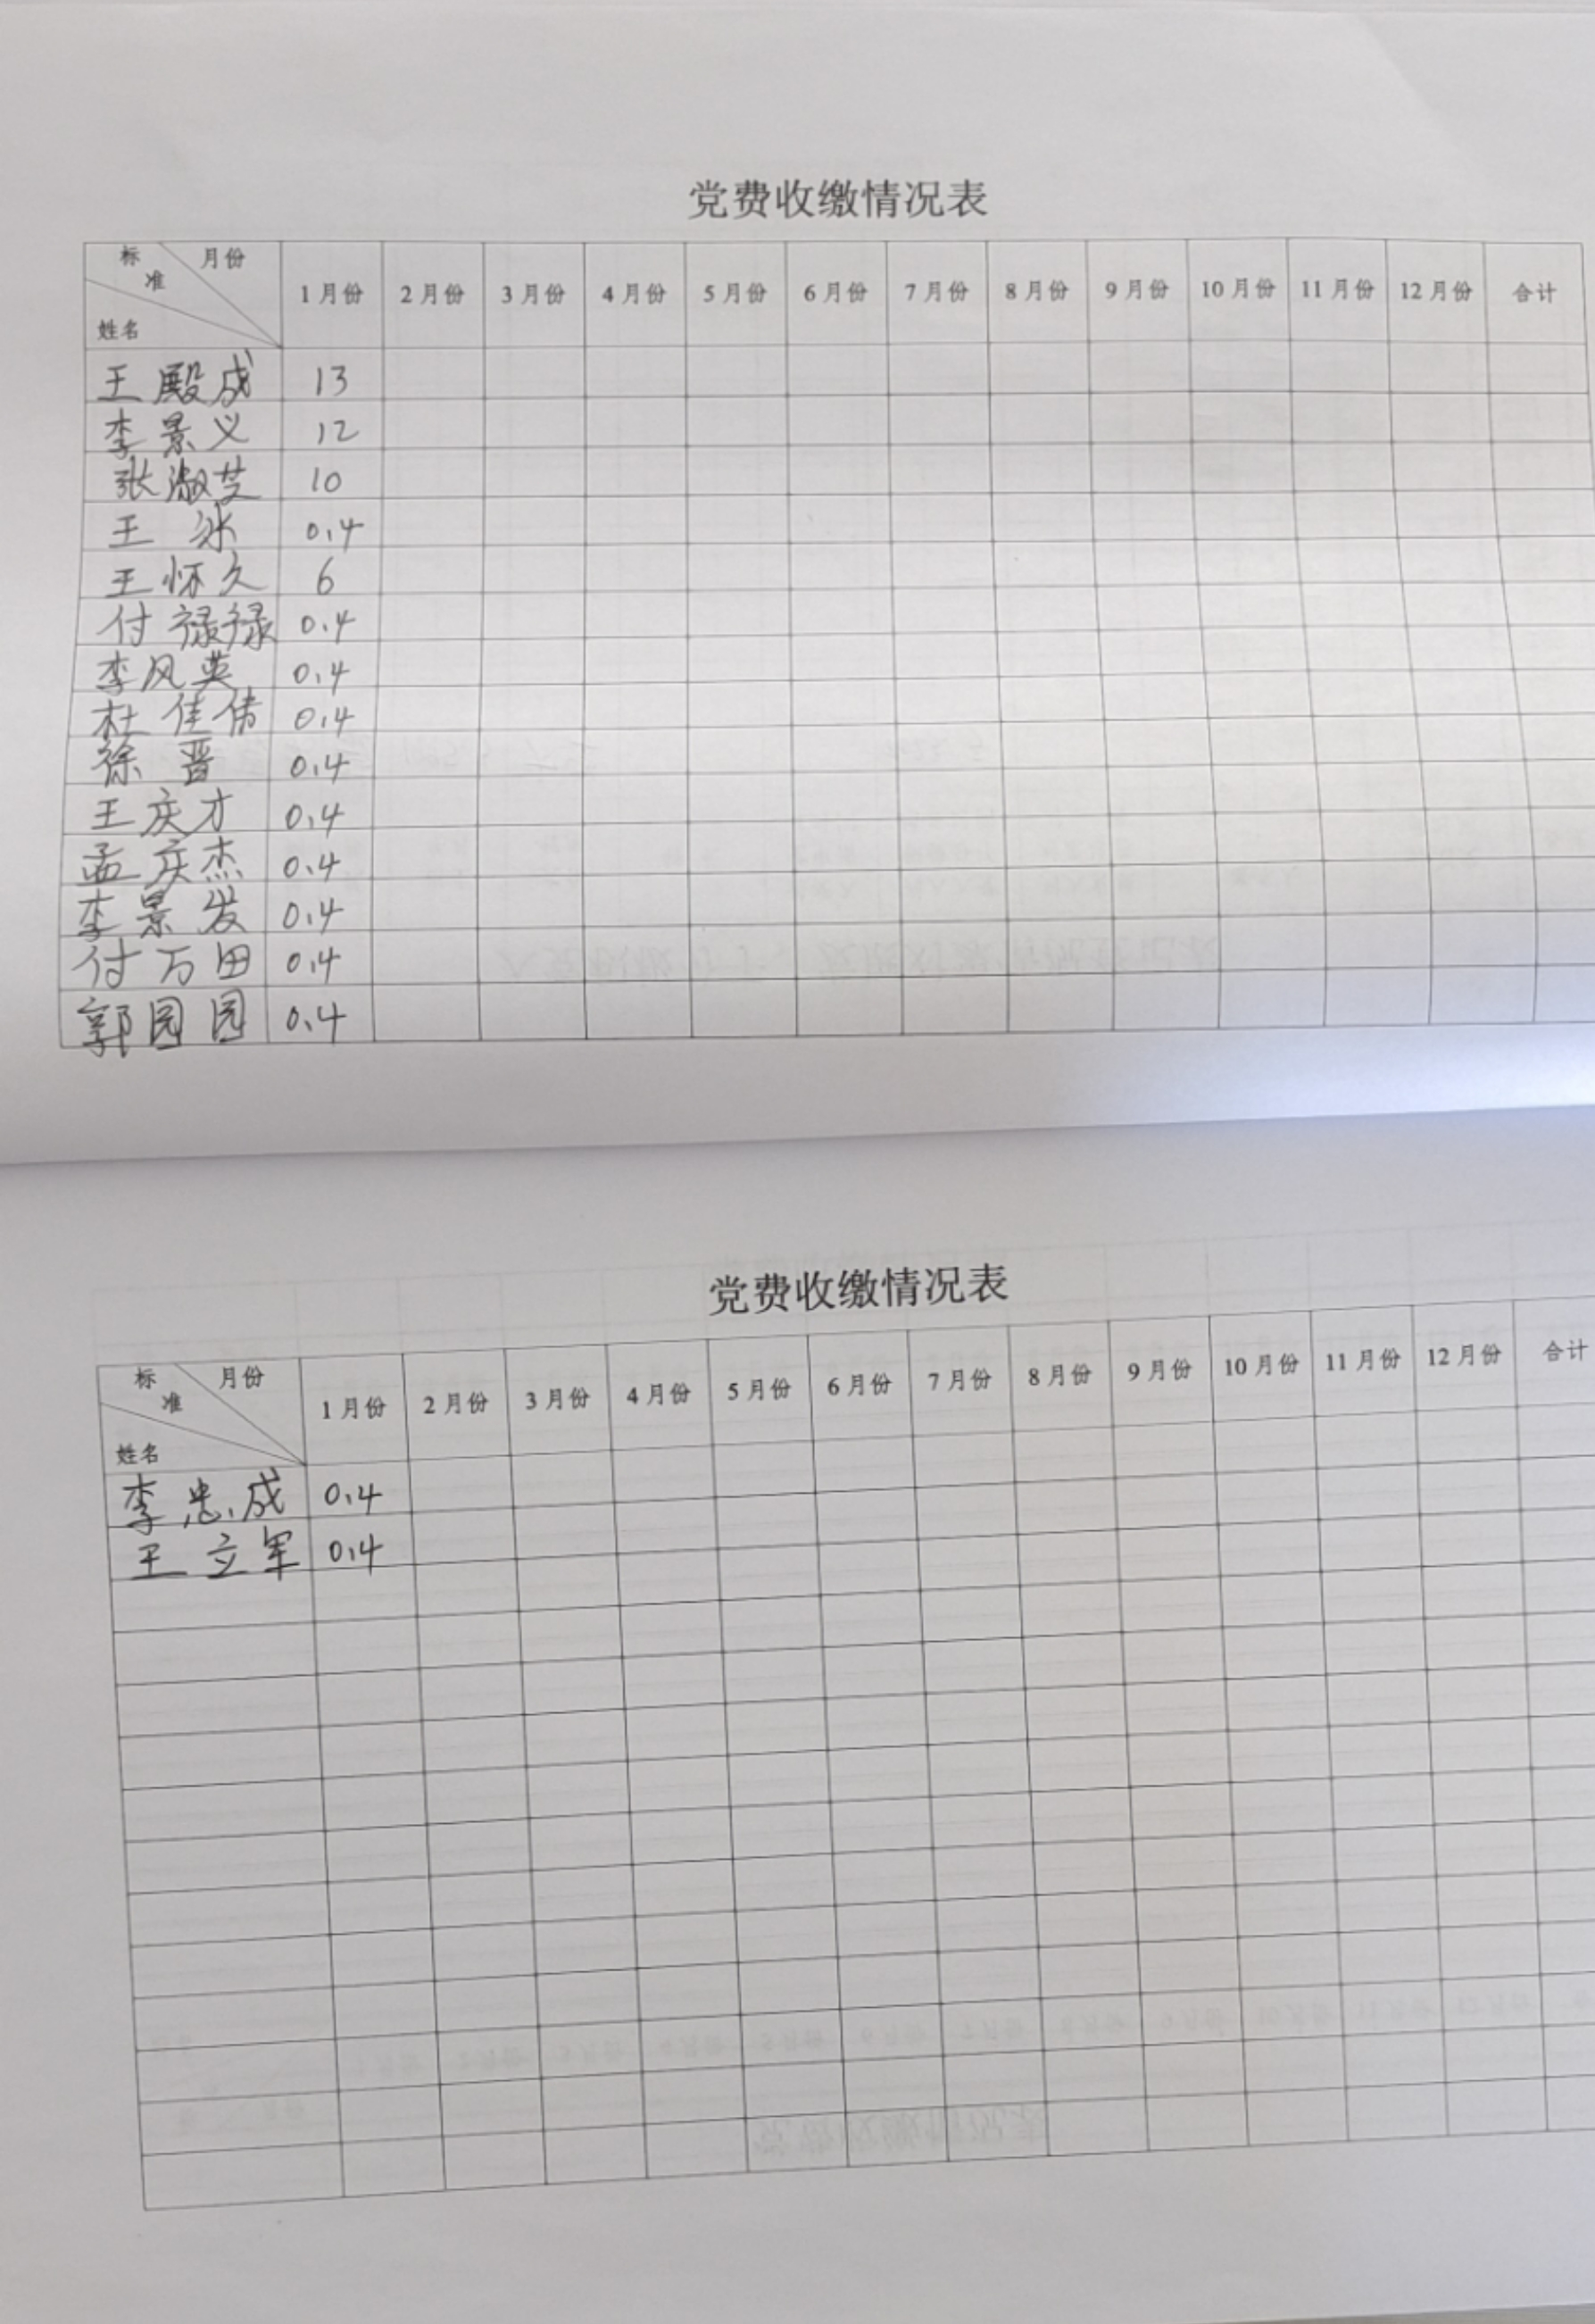 党费收缴情况表
标准 月份 姓名 1月份 2月份 3月份 4月份 5月份 6月份 7月份 8月份 9月份 10月份 11月份 12月份 合计
王殿成 13
李景义 12
张淑芝 10
王冰 0.4
王怀久 6
付禄禄 0.4
李风英 0.4
杜佳倩 0.4
徐晋 0.4
王庆才 0.4
孟庆杰 0.4
李景发 0.4
付万田 0.4
郭园园 0.4
党费收缴情况表
标准 月份 姓名 1月份 2月份 3月份 4月份 5月份 6月份 7月份 8月份 9月份 10月份 11月份 12月份 合计
李忠成 0.4
王立军 0.4